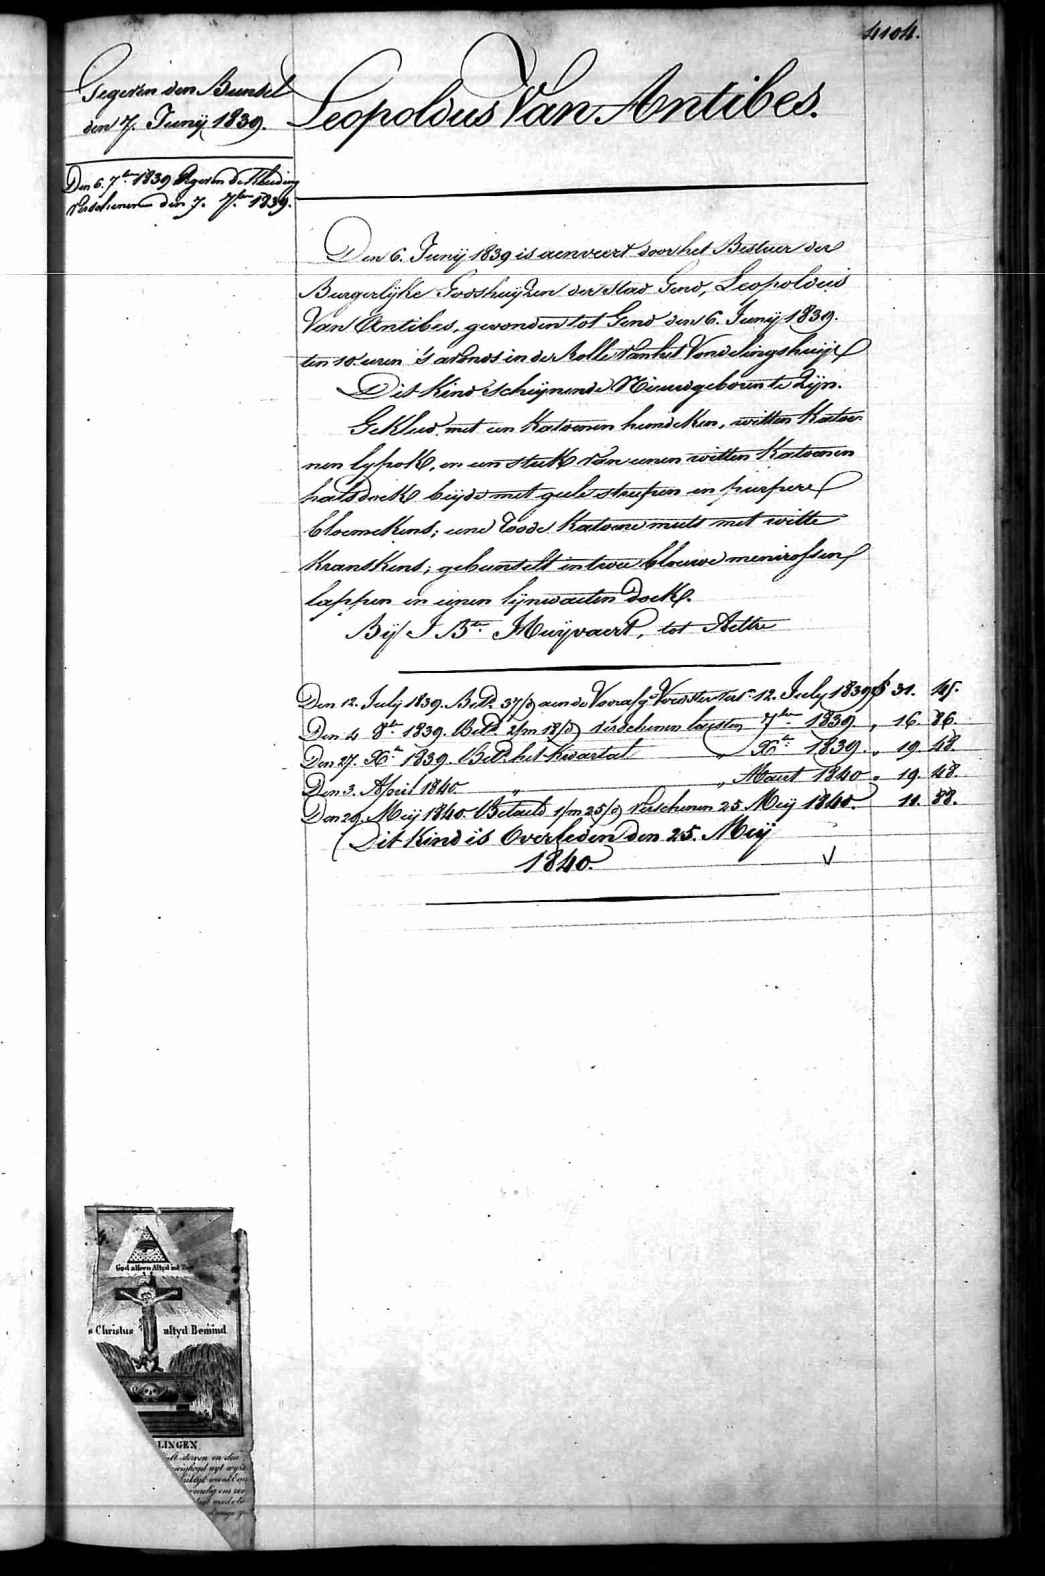 4104.
Gegeven den Bundel
den 7. Junij 1839.
Den 6. 7bre 1839 Gegeven de Kleeding
verschenen den 7. 7bre 1839.
Leopoldus Van Antibes.
Den 6. Junij 1839 is aenveert door het Bestuer der
Burgerlijke Godshuijzen der stad Gend, Leopoldus
Van Antibes, gevonden tot Gend den 6. Junij 1839.
ten 10 uren 's avonds in der Rolle van het Vondelingshuijs
Dit Kind scheijnende Nieuwgeboren te Zijn.
Gekleed met een Katoenen hemdeken, witten Katoe-
nen lyfrok, en een stuk van eenen witten Katoenen
halsdoek beijde met geele streepen en purpere
bloemekens; eene Roode Katoene muts met witte
Kranskens; gebundelt in twee blauwe
lappen en eenen lijnwaeten Doek.
Bij J Bte Muijvaert, tot Aeltre
Den 12. Julij 1839. Betd. 37/d aen de Voorafg. Voedster vers. 12. Julij 1839 f 31. 45.
Den 4 8bre 1839. Betd. 2/m 18/d verschenen laesten 7bre 1839. „ 16. 86.
Den 27. Xbre 1839. Betd. het Kwartal „ Xbre 1839. „ 19. 48.
Den 3. April 1840. „ „ Maert 1840 „ 19. 48.
Den 29. Meij 1840. Betaeld 1/m 25/d verschenen 25 Meij 1840. 11. 88.
Dit Kind is Overleden den 25. Meij
1840.
God alleen Altyd int
s Christus altyd Bemind
LINGEN